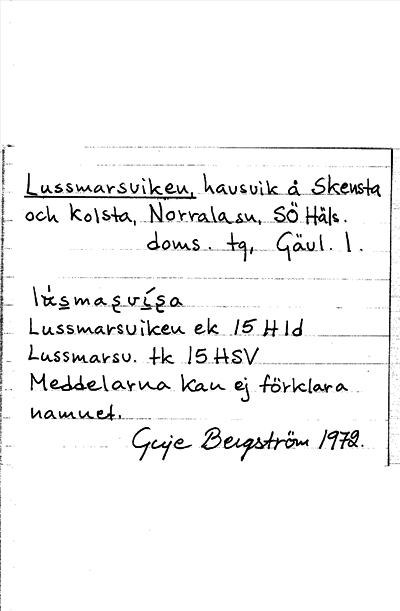 Lussmarsviken, havsvik å Skensta
och Kolsta, Norrala sn, SÖ Häls.
doms. tg, Gävl. l.
Lussmarsviken ek 15 H 1d
Lussmarsv. tk 15 HSV
Meddelarna kan ej förklara
namnet.
Guje Bergström 1972.